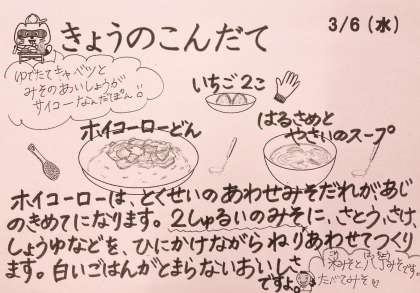 きょうのこんだて
3/6(水)
ゆでたてキャベツと
みそのあいしょうが
サイコーなんだぽん!!
いちご2こ
ホイコーローどん
はるさめと
やさいのスープ
ホイコーローは、とくせいのあわせみそだれが、あじ
のきめてになります。2しゅるいのみそに、さとう、さけ、
しょうゆなどを、ひにかけながらねりあわせてつくり
ます。白いごはんがとまらないおいしさ
ですよ。
赤みそと八丁みそです。
たべてみそ!!